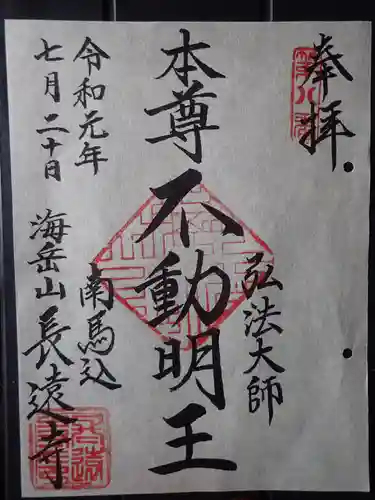 奉拝
弘法大師
本尊不動明王
南馬込
令和元年
七月二十日
海岳山長遠寺